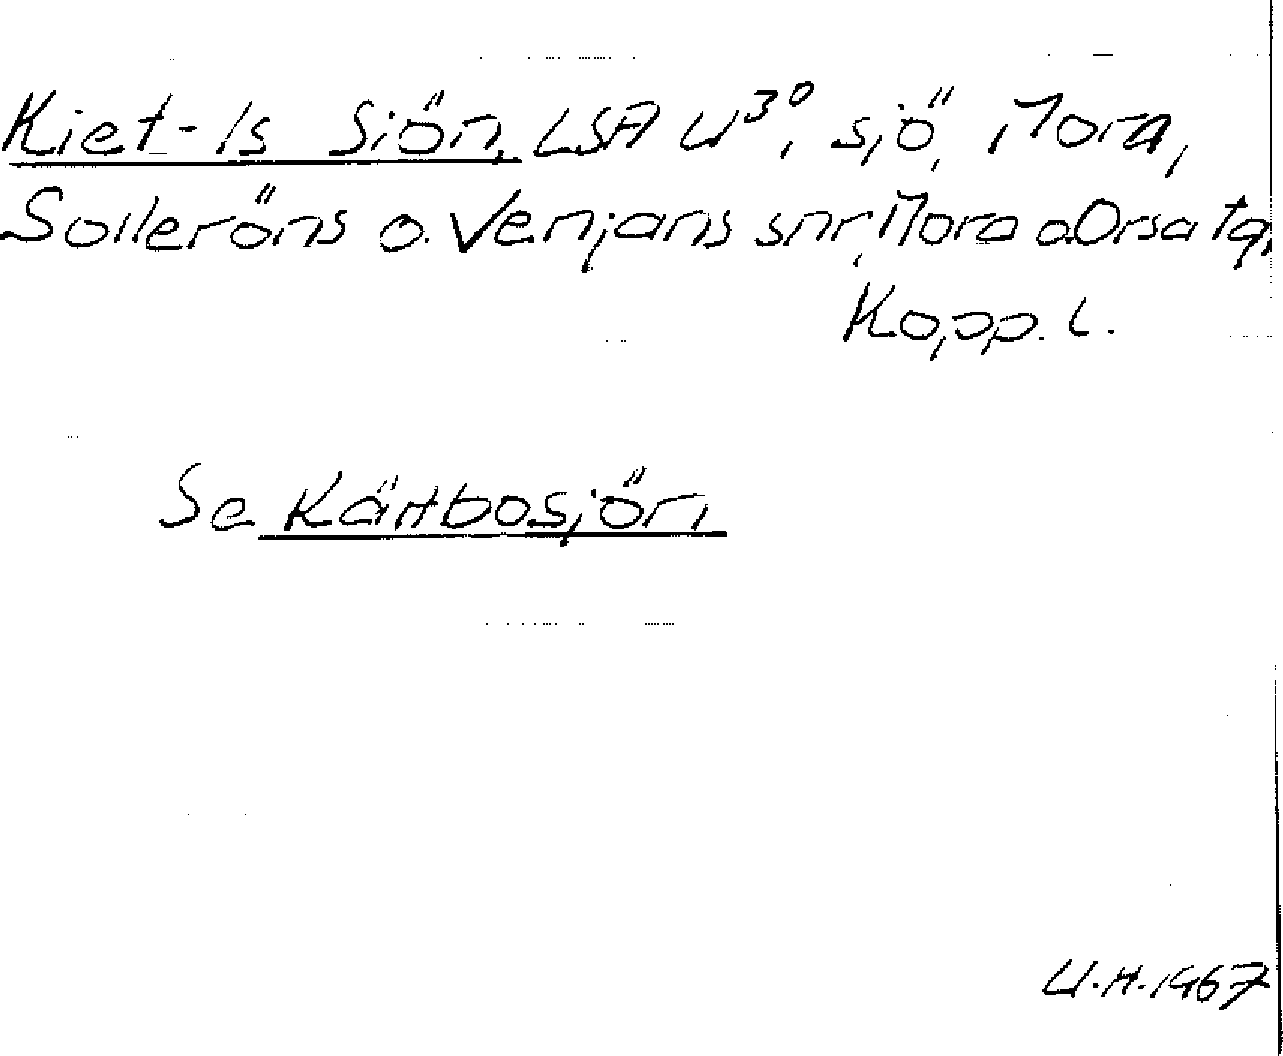 Kiet-ls Siön, LSA U³⁰, sjö, Mora,
Solleröns o. Venjans snr, Mora o. Orsa tg,
Kopp. l.
Se Kättbosjön
U.H. 1967